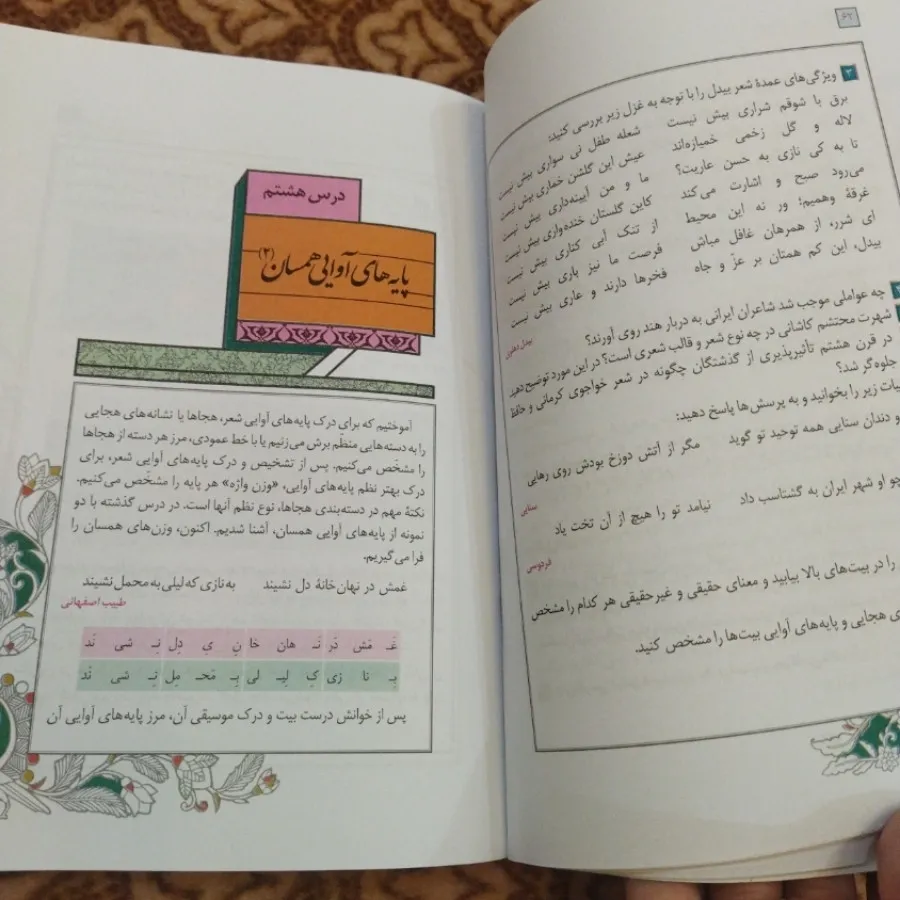 ۶۲
۳ ویژگی‌های عمدهٔ شعر بیدل را با توجه به غزل زیر بررسی کنید:
برق با شوقم شراری بیش نیست شعله طفل نی سواری بیش نیست
لاله و گل زخمی خمیازه‌اند عیش این گلشن خماری بیش نیست
تا به کی نازی به حسن عاریت؟ ما و من آیینه‌داری بیش نیست
می‌رود صبح و اشارت می‌کند کاین گلستان خنده‌واری بیش نیست
غرقهٔ وهمیم؛ ور نه این محیط از تنک آبی کناری بیش نیست
ای شرر، از همرهان غافل مباش فرصت ما نیز باری بیش نیست
بیدل، این کم همتان بر عزّ و جاه فخرها دارند و عاری بیش نیست
بیدل دهلوی
چه عواملی موجب شد شاعران ایرانی به دربار هند روی آورند؟
شهرت محتشم کاشانی در چه نوع شعر و قالب شعری است؟ در این مورد توضیح دهید.
در قرن هشتم تأثیرپذیری از گذشتگان چگونه در شعر خواجوی کرمانی و حافظ
جلوه‌گر شد؟
یات زیر را بخوانید و به پرسش‌ها پاسخ دهید:
و دندان سنایی همه توحید تو گوید مگر از آتش دوزخ بودش روی رهایی
سنایی
چو او شهر ایران به گشتاسب داد نیامد تو را هیچ از آن تخت یاد
فردوسی
را در بیت‌های بالا بیابید و معنای حقیقی و غیرحقیقی هر کدام را مشخص
ی هجایی و پایه‌های آوایی بیت‌ها را مشخص کنید.
درس هشتم
پایه‌های آوایی همسان (۲)
آموختیم که برای درک پایه‌های آوایی شعر، هجاها یا نشانه‌های هجایی
را به دسته‌هایی منظّم برش می‌زنیم یا با خط عمودی، مرز هر دسته از هجاها
را مشخّص می‌کنیم. پس از تشخیص و درک پایه‌های آوایی شعر، برای
درک بهتر نظم پایه‌های آوایی، «وزن واژه» هر پایه را مشخّص می‌کنیم.
نکتهٔ مهم در دسته‌بندی هجاها، نوع نظم آنها است. در درس گذشته با دو
نمونه از پایه‌های آوایی همسان، آشنا شدیم. اکنون، وزن‌های همسان را
فرا می‌گیریم.
غمش در نهان‌خانهٔ دل نشیند به نازی که لیلی به محمل نشیند
طبیب اصفهانی
غَـ مَش دَر نَـ هان خا نِ یِ دِل نِـ شی نَد
بِـ نا زی کِ لِیـ لی بِـ مَحـ مِل نِـ شی نَد
پس از خوانش درست بیت و درک موسیقی آن، مرز پایه‌های آوایی آن